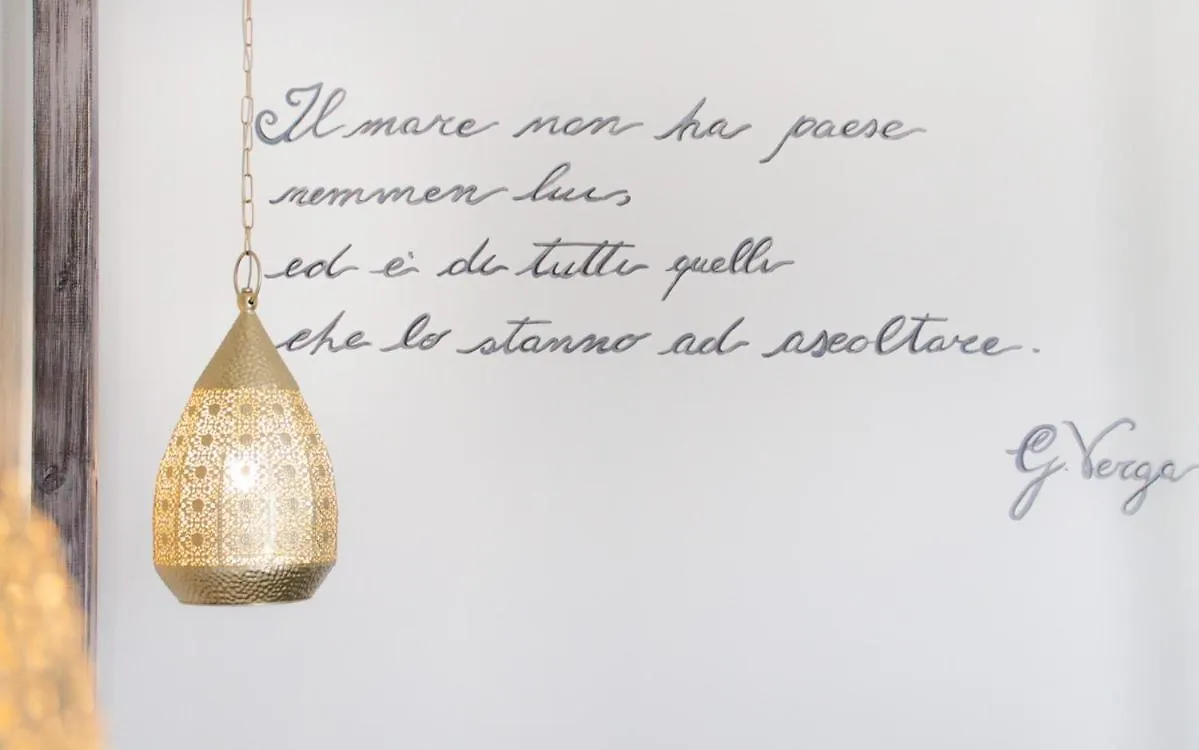 Il mare non ha paese
nemmen lui,
ed è di tutti quelli
che lo stanno ad ascoltare.
G. Verga